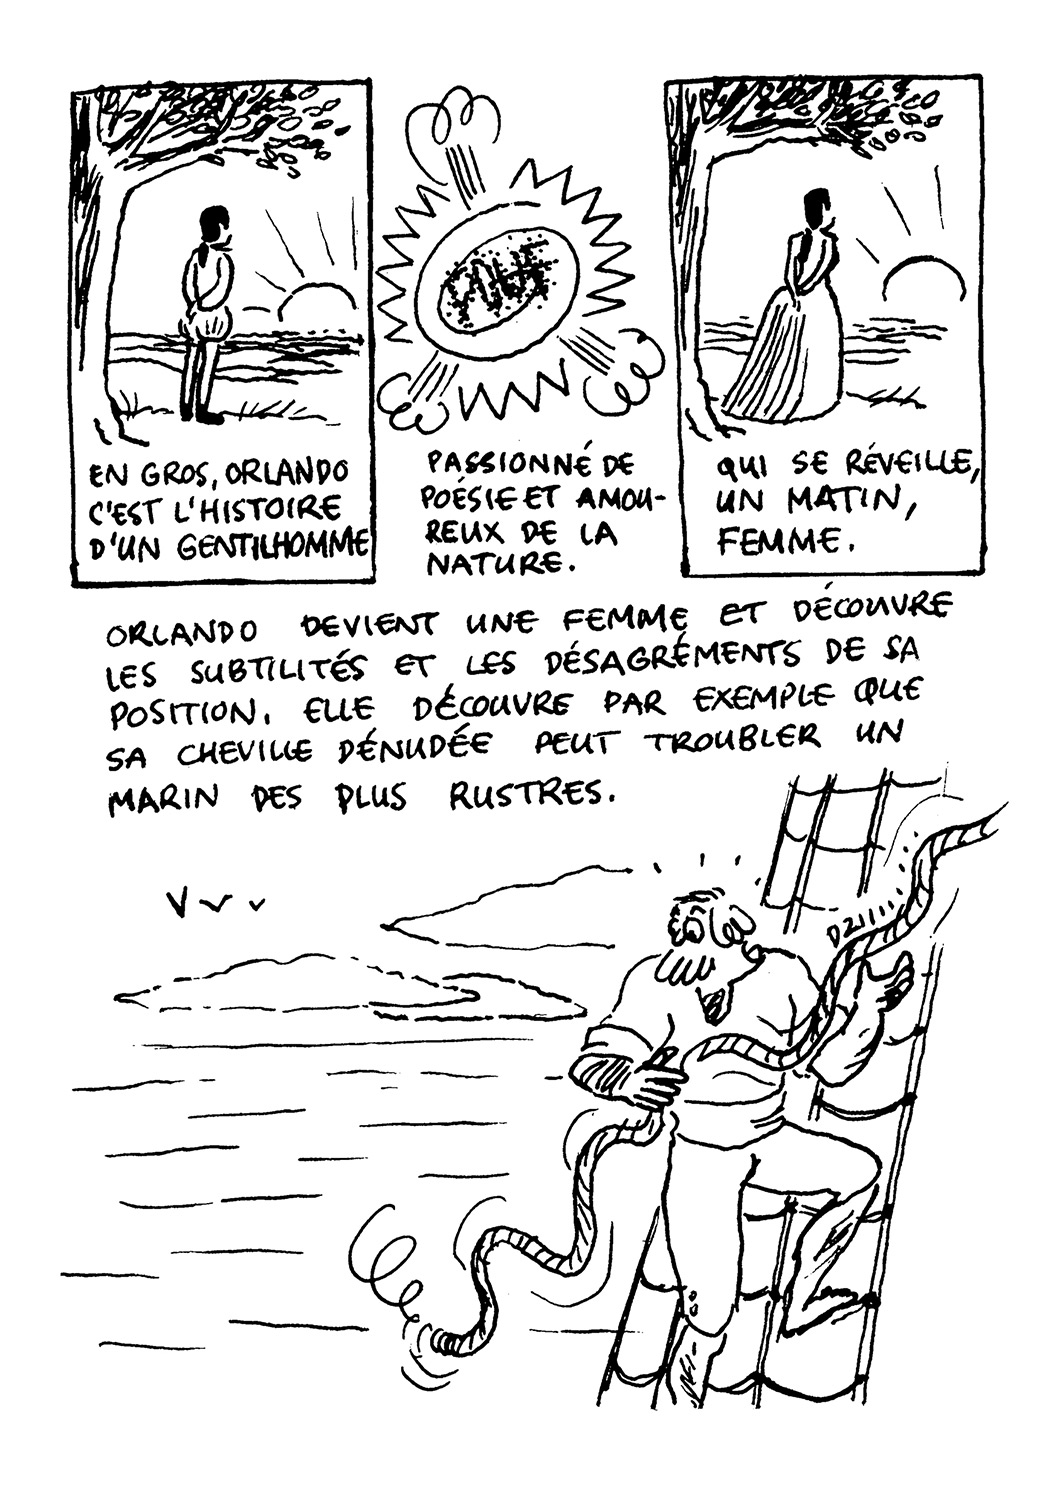 EN GROS, ORLANDO
C'EST L'HISTOIRE
D'UN GENTILHOMME
PASSIONNÉ DE
POÉSIE ET AMOU-
REUX DE LA
NATURE.
QUI SE RÉVEILLE,
UN MATIN,
FEMME.
ORLANDO DEVIENT UNE FEMME ET DÉCOUVRE
LES SUBTILITÉS ET LES DÉSAGRÉMENTS DE SA
POSITION. ELLE DÉCOUVRE PAR EXEMPLE QUE
SA CHEVILLE DÉNUDÉE PEUT TROUBLER UN
MARIN DES PLUS RUSTRES.
DZIIIII